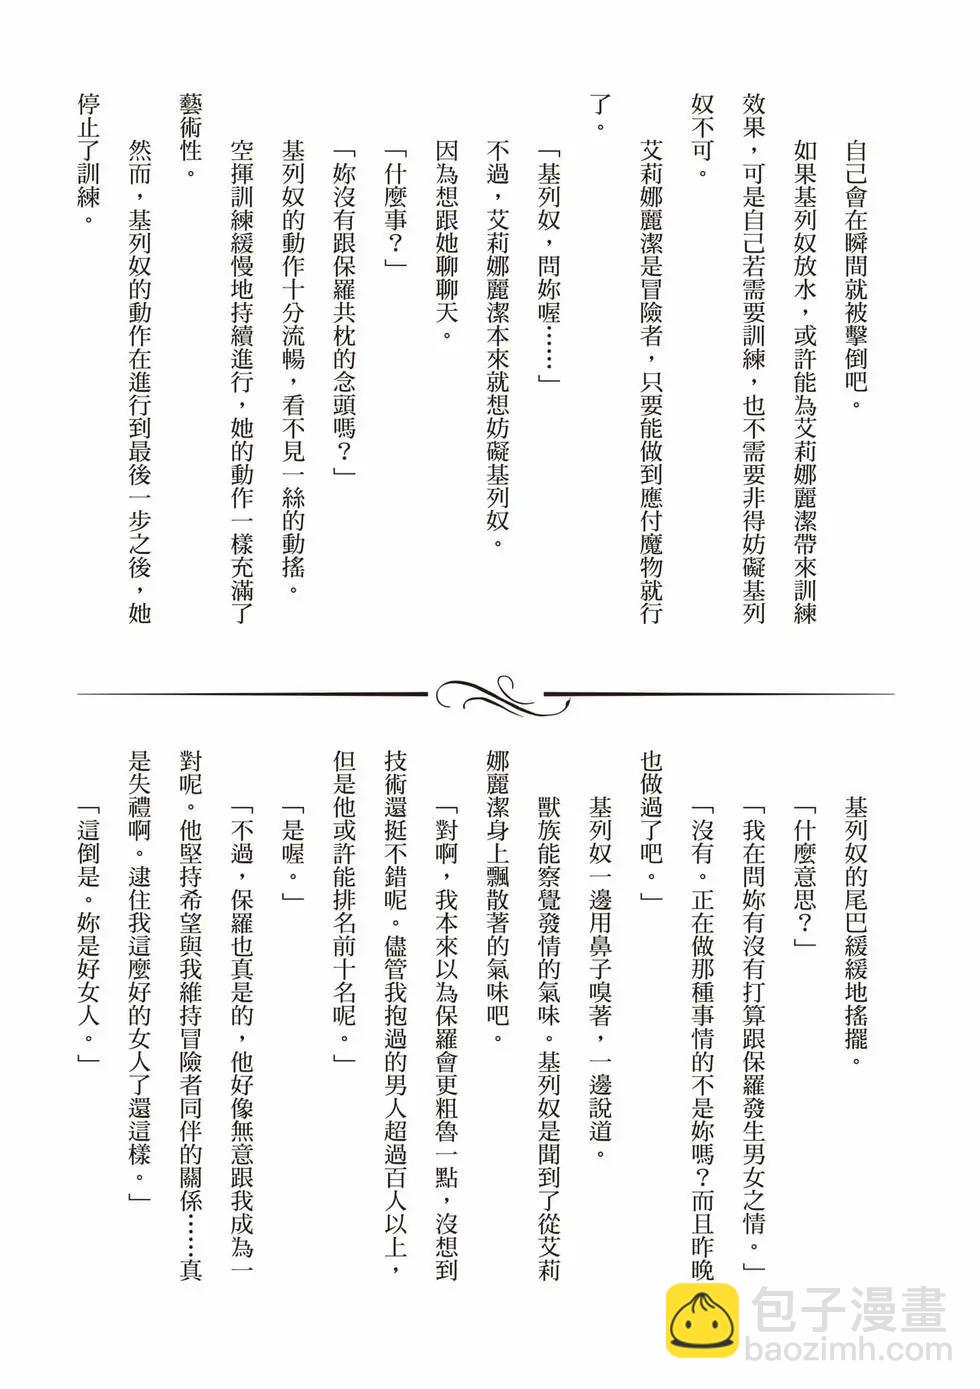 自己會在瞬間就被擊倒吧。
如果基列奴放水，或許能為艾莉娜麗潔帶來訓練
效果，可是自己若需要訓練，也不需要非得妨礙基列
奴不可。
艾莉娜麗潔是冒險者，只要能做到應付魔物就行
了。
「基列奴，問妳喔……」
不過，艾莉娜麗潔本來就想妨礙基列奴。
因為想跟她聊聊天。
「什麼事？」
「妳沒有跟保羅共枕的念頭嗎？」
基列奴的動作十分流暢，看不見一絲的動搖。
空揮訓練緩慢地持續進行，她的動作一樣充滿了
藝術性。
然而，基列奴的動作在進行到最後一步之後，她
停止了訓練。
基列奴的尾巴緩緩地搖擺。
「什麼意思？」
「我在問妳有沒有打算跟保羅發生男女之情。」
「沒有。正在做那種事情的不是妳嗎？而且昨晚
也做過了吧。」
基列奴一邊用鼻子嗅著，一邊說道。
獸族能察覺發情的氣味。基列奴是聞到了從艾莉
娜麗潔身上飄散著的氣味吧。
「對啊，我本來以為保羅會更粗魯一點，沒想到
技術還挺不錯呢。儘管我抱過的男人超過百人以上，
但是他或許能排名前十名呢。」
「是喔。」
「不過，保羅也真是的，他好像無意跟我成為一
對呢。他堅持希望與我維持冒險者同伴的關係……真
是失禮啊。逮住我這麼好的女人了還這樣。」
「這倒是。妳是好女人。」
包子漫畫
baozimh.com